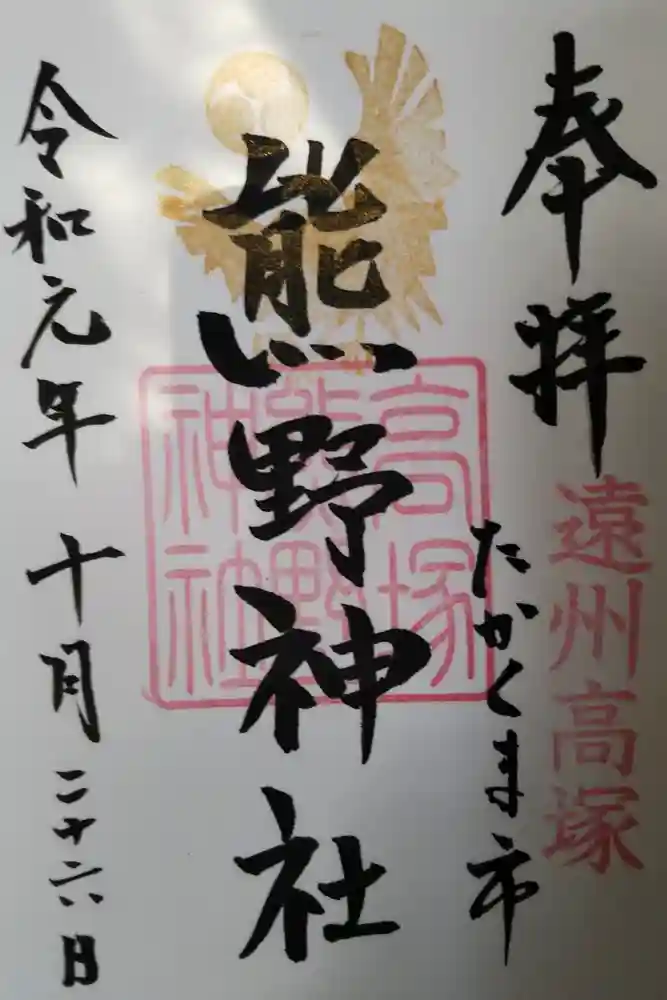 奉拝
遠州高塚
たかくま市
熊野神社
高塚
熊野
神社
令和元年十月二十六日